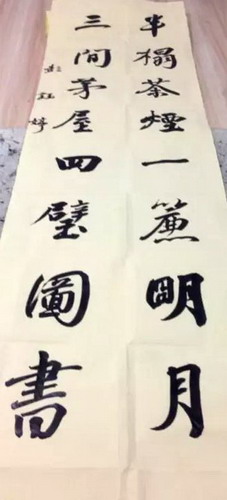 半榻茶煙一簾明月
三間茅屋四壁圖書
彭鈺婷